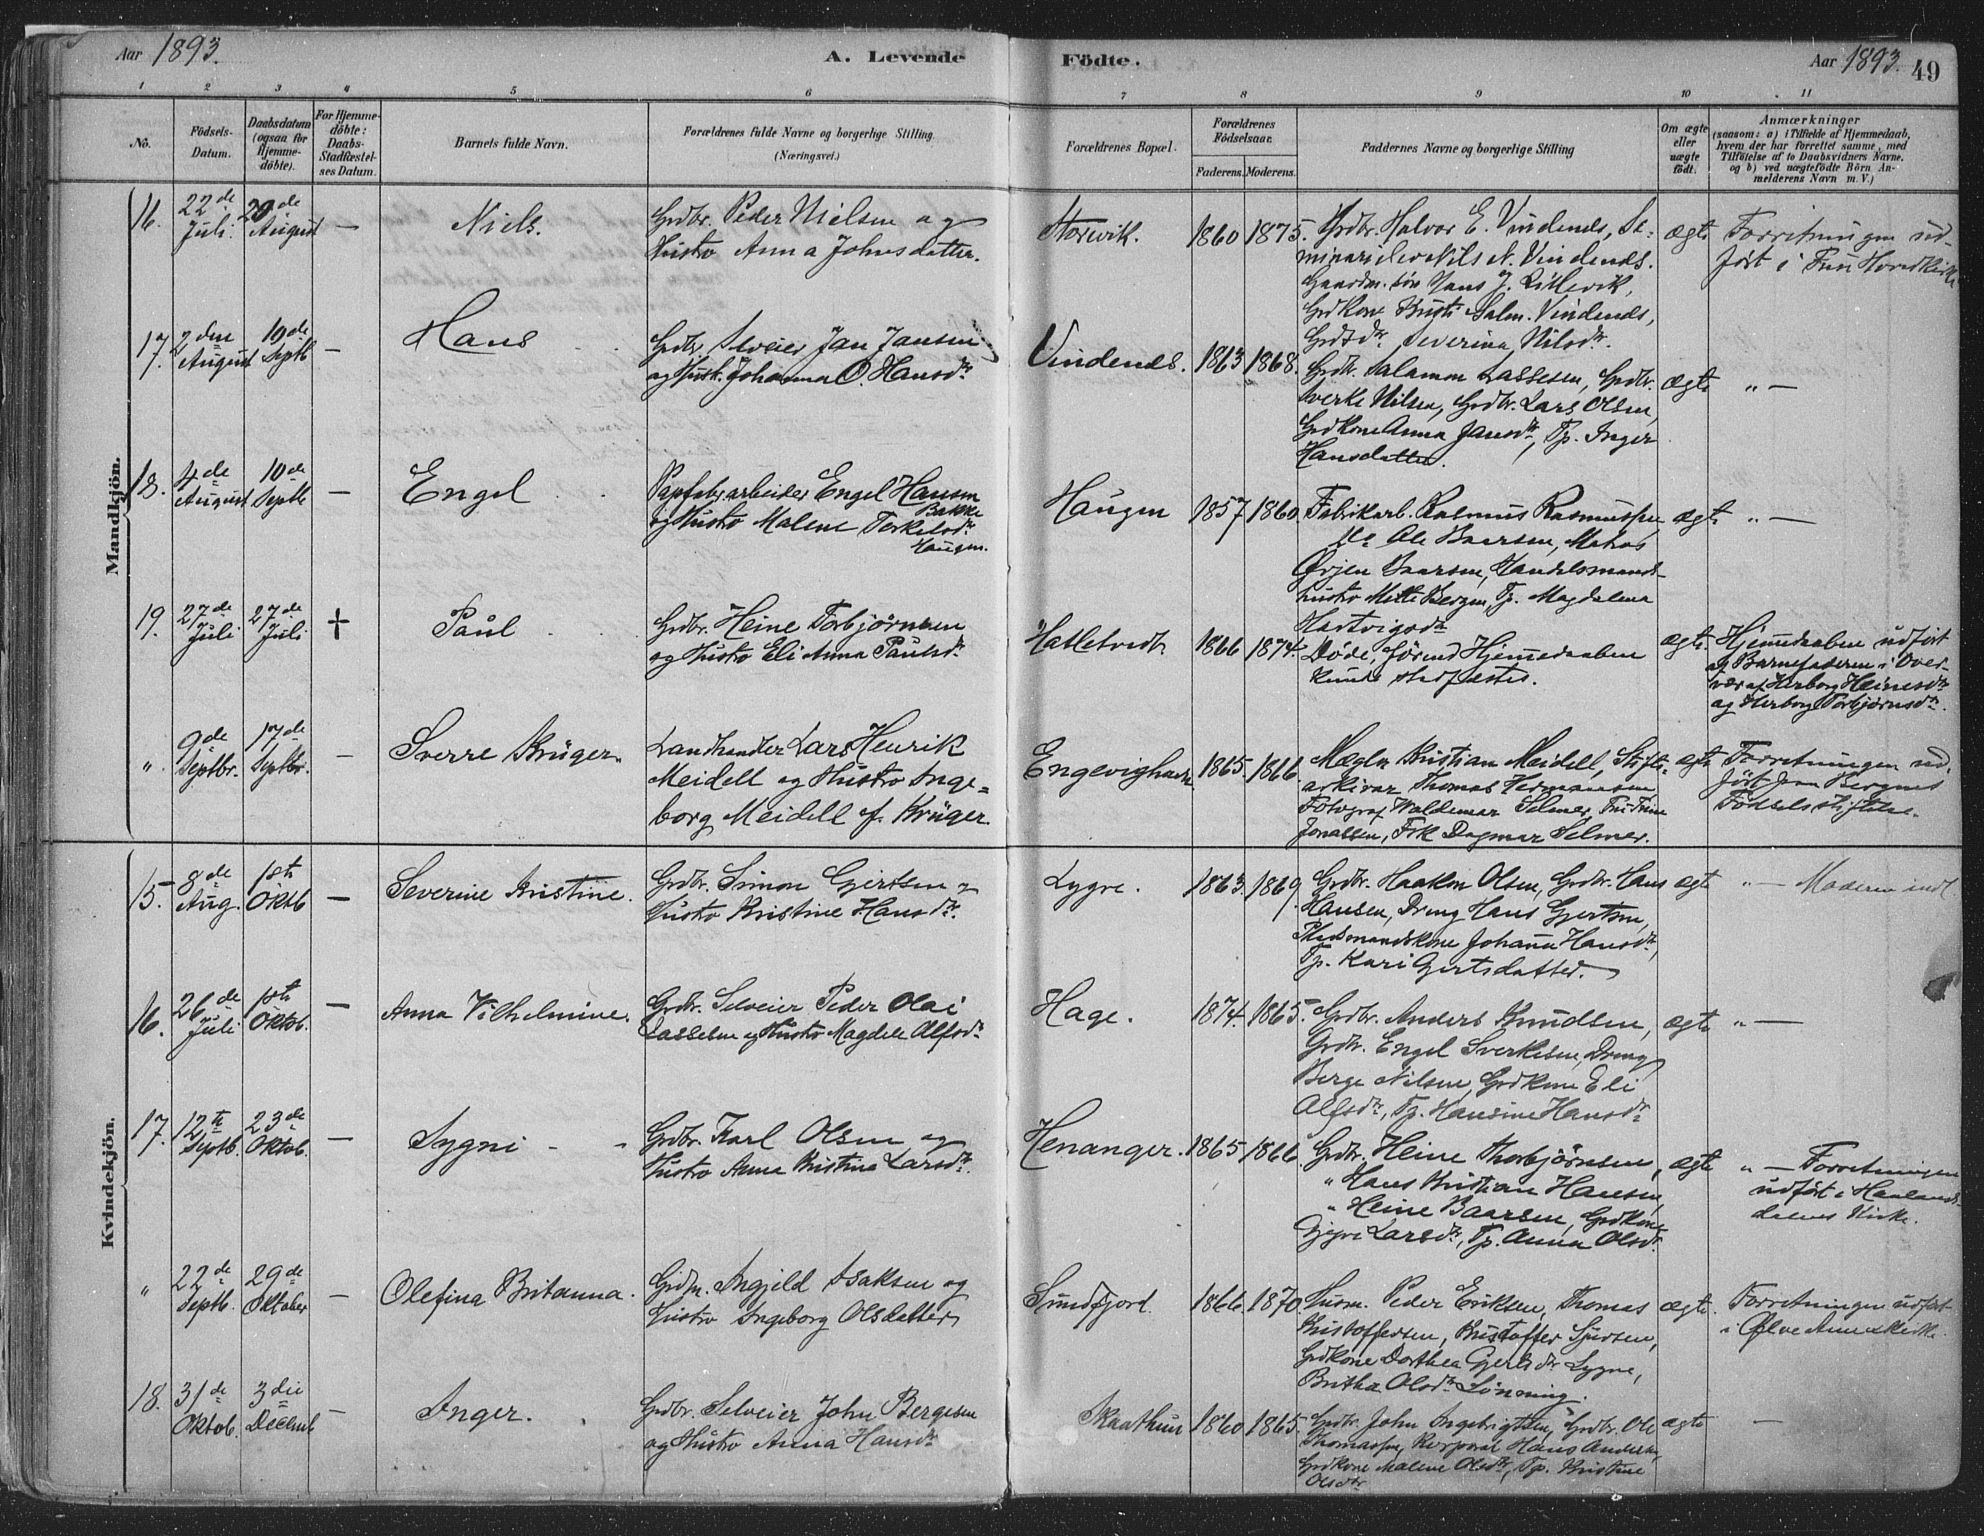 Aar 1893.
A. Levende
Födte.
Aar 1893.
49
1 2 3 4 5 6 7 8 9 10 11
No.
Födsels-Datum.
Daabsdatum (ogsaa for Hjemme-döbte).
For Hjemme-döbte: Daabs-Stadfæstel-ses Datum.
Barnets fulde Navn.
Forældrenes fulde Navne og borgerlige Stilling (Næringsvei.)
Forældrenes Bopæl.
Forældrenes Födselsaar.
Faderens. Moderens.
Faddernes Navne og borgerlige Stilling
Om ægte eller uægte født.
Anmærkninger
(saasom: a) i Tilfælde af Hjemmedaab,
hvem der har forrettet samme, med
Tilföielse af to Daabsvidners Navne,
og b) ved uægtefödte Börn An-
melderens Navn m. V.)
Mandkjön.
16. 22de Juli. 20de August — Niels.
Grdbr. Peder Nielsen og
Hustro Anna Johnsdatter.
Storevik. 1860 1875.
Grdbr. Halvor E. Vindenes, Se-
minarielev Nils N. Vindenes.
Gaardm. søn Hans J. Litlevik,
Grdkone Salm. Vindenes,
Severina Nilsdr.
ægte
Forretningen ud-
ført i
17. 2den August 10de Septb — Hans
Grdbr. Selveier Jan Jansen
og Hust. Johanna O. Hansdr
Vindenes. 1863 1868.
Grdbr. Salamon Lassesen, Grdbr.
Sverke Nilsen, Grdbr. Lars Olsen,
Grdkone Anna Jansdr, Tp. Inger
Hansdatter.
ægte " —
18. 4de August 10de Septb — Engel
Papfabrarbeider Engel Hansen
Bakke
og Hustro Malene Torkelsdr
Haugen.
Haugen 1857 1860
Fabrikarb. Rasmus Rasmussen,
Do Ole Baarsen, Matros
Ørjen Baarsen, Handelsmands-
hustro Mette Bergen, Tp. Magdalena
Hartvigsdr
ægte " —
19. 27de Juli 27de Juli + Paul
Grdbr. Heine Torbjørnsen
og Hustro Eli Anna Paulsdr
Hatletvedt. 1866 1874.
Døde, førend Hjemmedaaben
kunde stadfæstes.
ægte.
Hjemmedaaben udført
af Barnefaderen i Over-
vær af Herborg Heinesdr
og Herborg Torbjørnsdr.
" 9de Septbr. 17de Septbr. — Sverre Krüger.
Landhandler Lars Henrik
Meidell og Hustro Inge-
borg Meidell f. Krüger.
Engevighavn 1865. 1866.
Mægler Kristian Meidell, Stifts-
arkivar Thomas Hermansen
Fotograf Waldemar Selmer, Fru Trine
Jonassen, Frk Dagmar Selmer.
ægte
Forretningen ud-
ført Bergens
Fødselsstiftelse.
Kvindekjön.
15. 8de Aug. 1ste Oktb — Severine Kristine.
Grdbr. Simon Gjertsen og
Hustro Kristine Hansdr.
Lygre. 1863. 1869.
Grdbr. Haakon Olsen, Grdbr. Hans
Hansen, Dreng Hans Gjertsen,
Pladsmandskone Johanna Hansdr,
Tp. Kari Gjertsdatter.
ægte " — Moderen indl.
16. 26de Juli 1ste Oktob. — Anna Vilhelmine.
Grdbr. Selveier Peder Olai
Lassesen og Hustro Magdele Alfsdr
Hage. 1874. 1865.
Grdbr. Anders Knudsen,
Grdbr. Engel Sverkesen, Dreng
Berge Nilsen, Grdkone Eli
Alfsdr, Tp. Hansine Hansdr
ægte " —
17. 12te Septb. 23de Oktob. — Sygni
Grdbr. Karl Olsen og
Hustro Anna Kristina Larsdr.
Henanger. 1865 1866.
Grdbr. Heine Thorbjørnsen,
" Hans Kristian Hansen,
" Heine Baarsen, Grdkone
Larsdr, Tp. Anna Olsdr
ægte " — Forretningen
udført i Haalands-
dalens Kirke.
" 22de Septb. 29de Oktober — Olefina Britanna.
Grdm. Ingjeld Isaksen og
Hustro Ingeborg Olsdatter
Sundfjord. 1866. 1870.
Husm. Peder Eriksen, Thomas
Kristoffersen, Kristoffer Sjursen,
Grdkone Dorthea Gjertsdr Lygre,
Britha Olsdr Lönning.
ægte.
Forretningen udført
i Ølve Annexkirke.
18. 31de Oktob. 3die Decemb — Inger.
Grdbr. Selveier John Bergesen
og Hustro Anna Hansdr
Skaathun 1860 1865.
Grdbr. John Ingebrigtsen, Grdbr. Ole
Thomassen, Korporal Hans Andersen,
Grdkone Malene Olsdtr, Tp. Kristine
Olsdtr.
ægte —